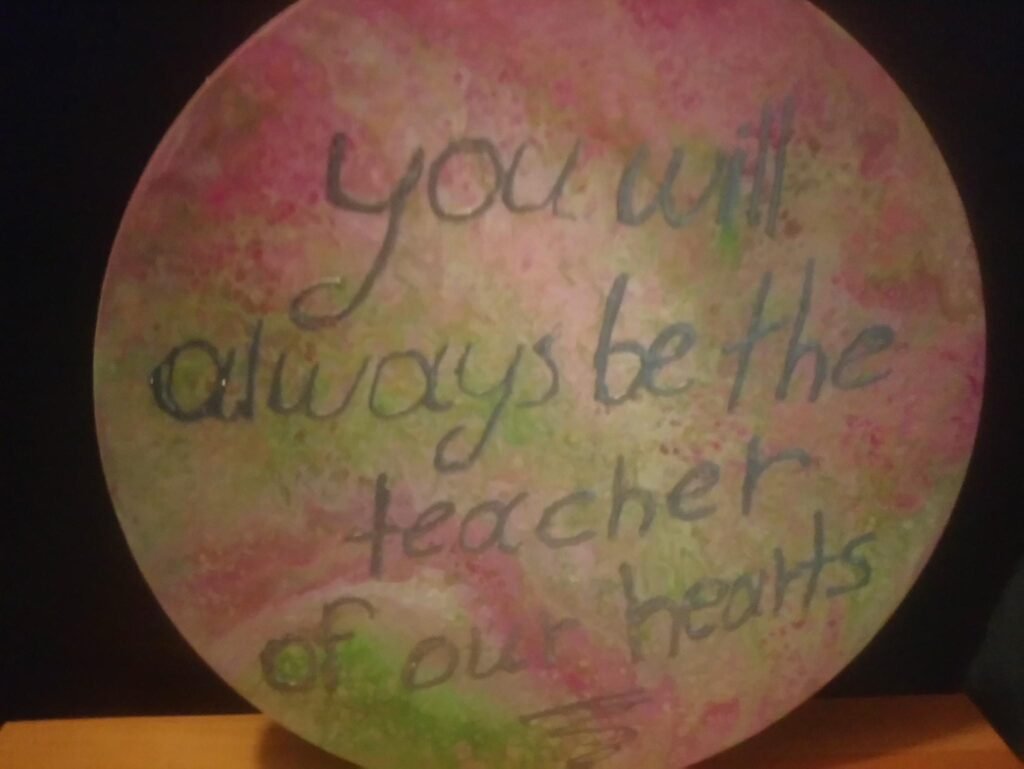 you will
always be the
teacher
of our hearts